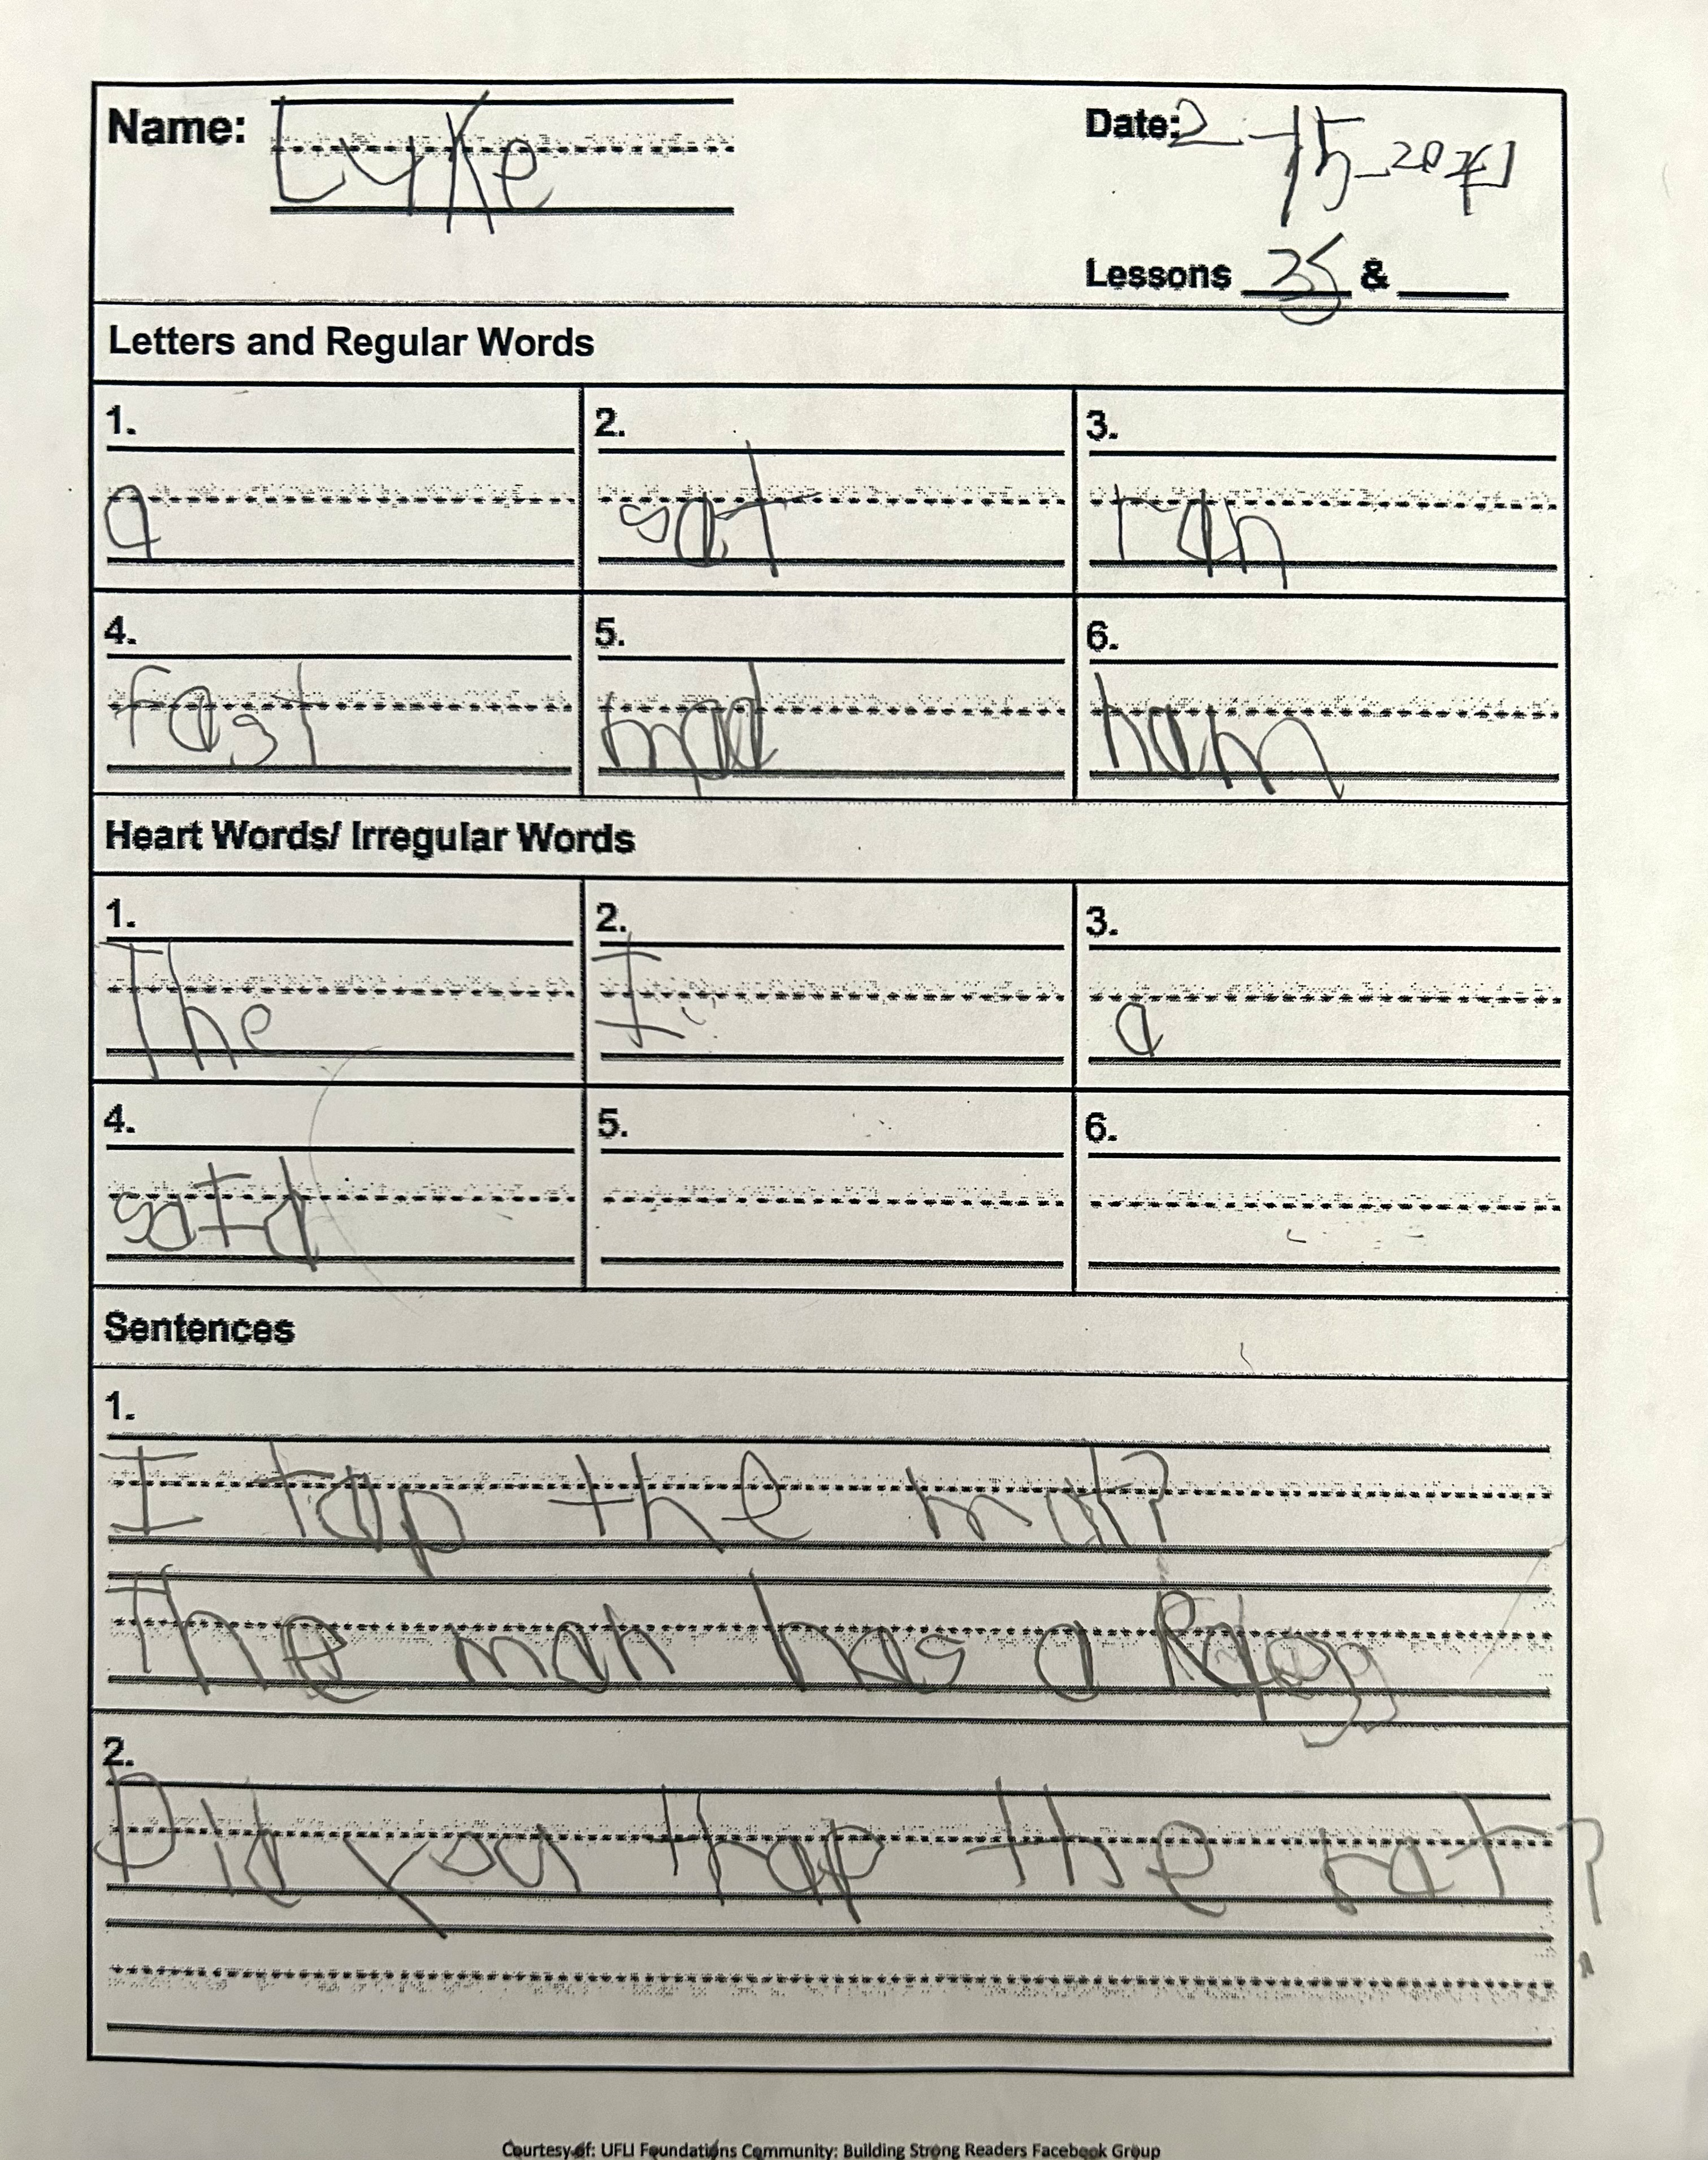 Name: Luke
Date: 2-15-2024
Lessons 35 &
Letters and Regular Words
1. 2. 3.
a sat ran
4. 5. 6.
fast mad ham
Heart Words/ Irregular Words
1. 2. 3.
The I a
4. 5. 6.
saId
Sentences
1.
I tap the mat?
The man has a
2.
Did you thap the rat?
Courtesy of: UFLI Foundations Community: Building Strong Readers Facebook Group